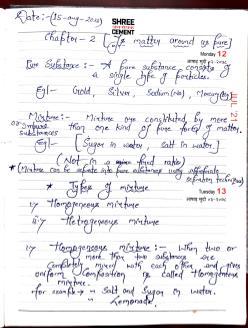 Date:- (15-aug-2024)
SHREE
CEMENT
Chapter-2 [Is matter around us pure]
Monday 12
Pure Substance:- A pure substance consists of
a single type of particles.
Eg:- Gold, Silver, Sodium(Na),
JUL '21
Mixture:- Mixture are constituted by more
than one kind of pure form of matter.
or impure
substances
Eg:- [Sugar in water, Salt in water]
(Not in a fixed ratio)
* (Mixture can be separate into pure substances using appropriate
separation techniques)
* Types of mixture
Tuesday 13
i:- Homogeneous mixture
ii:- Hetrogeneous mixture
i:- Homogeneous mixture:- When two or
more than two substances are
completely mixed with each other and gives
uniform composition is called Homogeneous
mixture.
for example → Salt and Sugar in water.
Lemonade.